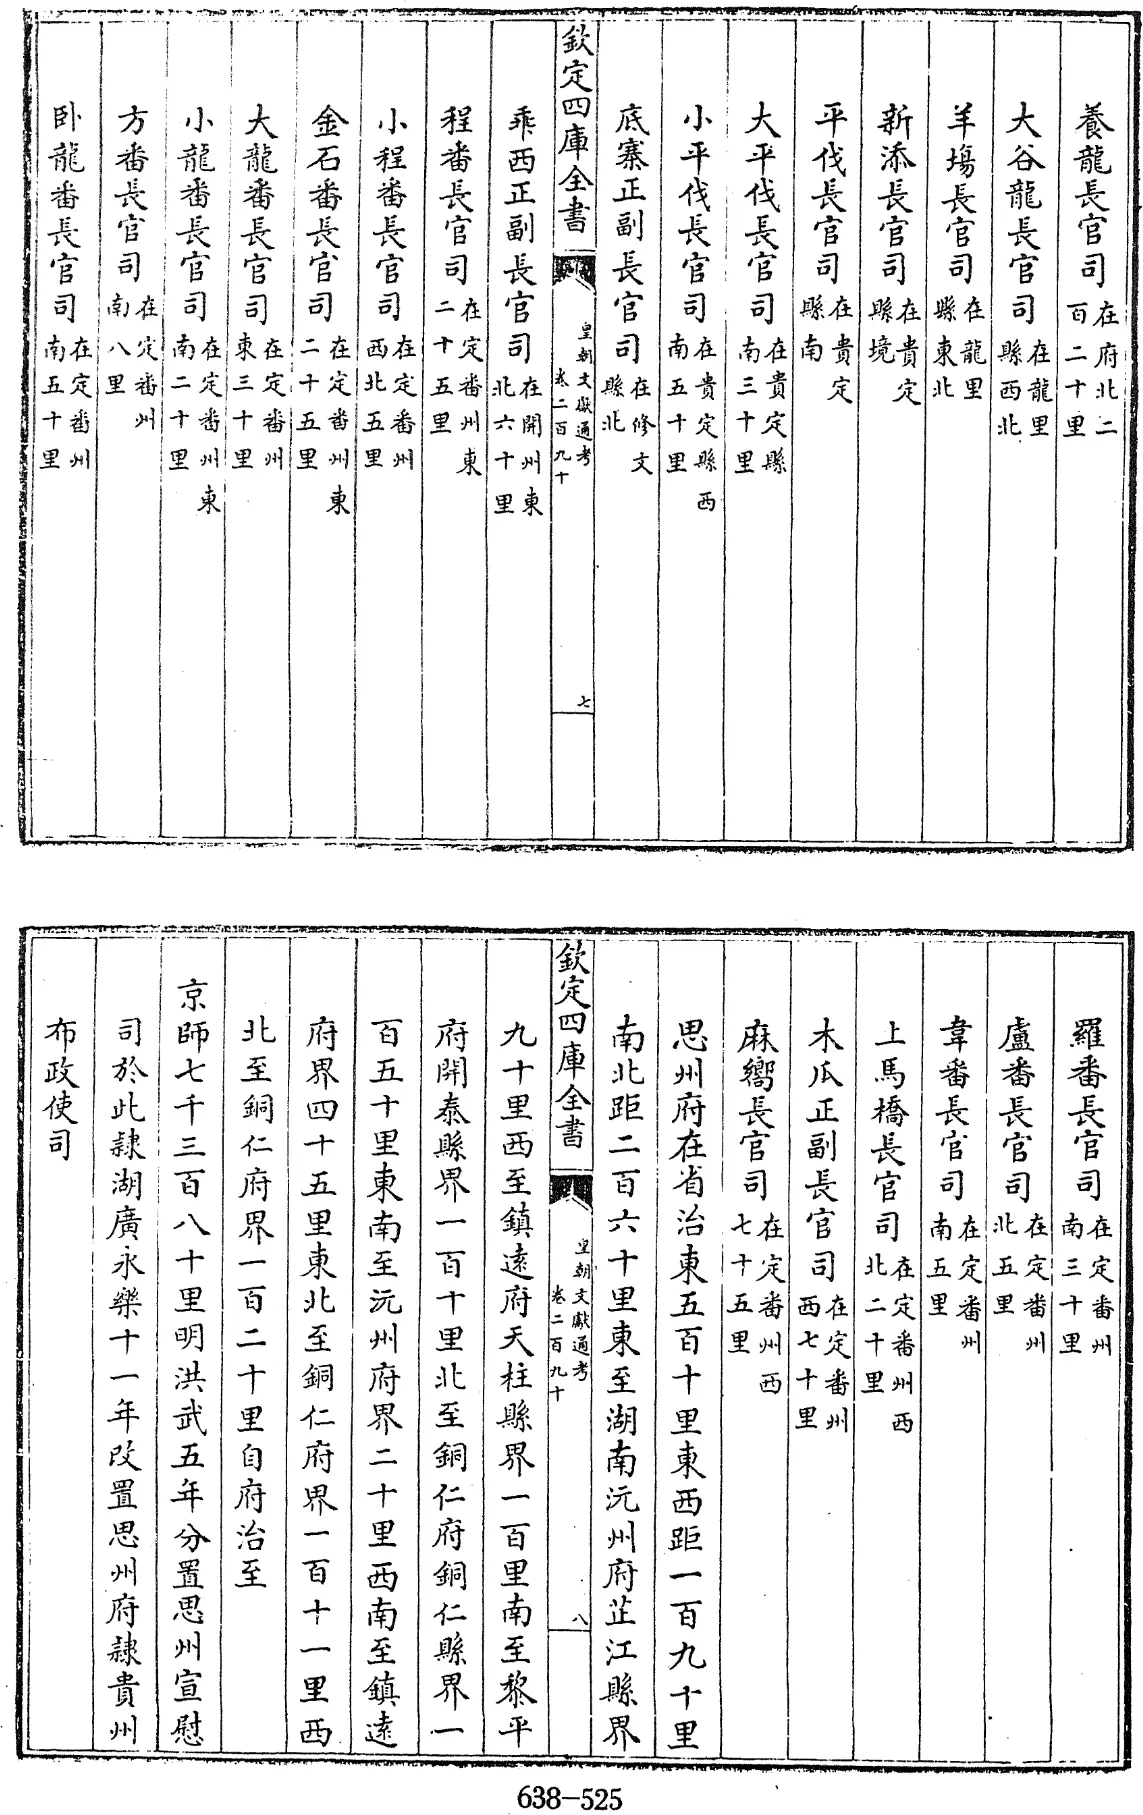 養龍長官司在府北二百二十里
大谷龍長官司在龍里縣西北
羊塲長官司在龍里縣東北
新添長官司在貴定縣境
平伐長官司在貴定縣南
大平伐長官司在貴定縣南三十里
小平伐長官司在貴定縣西南五十里
底寨正副長官司在修文縣北
欽定四庫全書
皇朝文獻通考
卷二百九十
七
乖西正副長官司在開州東北六十里
程番長官司在定番州東二十五里
小程番長官司在定番州西北五里
金石番長官司在定番州東二十五里
大龍番長官司在定番州東三十里
小龍番長官司在定番州東南二十里
方番長官司在定番州南八里
卧龍番長官司在定番州南五十里
羅番長官司在定番州南三十里
盧番長官司在定番州北五里
韋番長官司在定番州南五里
上馬橋長官司在定番州西北二十里
木瓜正副長官司在定番州西七十里
麻嚮長官司在定番州西七十五里
思州府在省治東五百十里東西距一百九十里
南北距二百六十里東至湖南沅州府芷江縣界
欽定四庫全書
皇朝文獻通考
卷二百九十
八
九十里西至鎮遠府天柱縣界一百里南至黎平
府開泰縣界一百十里北至銅仁府銅仁縣界一
百五十里東南至沅州府界二十里西南至鎮遠
府界四十五里東北至銅仁府界一百十一里西
北至銅仁府界一百二十里自府治至
京師七千三百八十里明洪武五年分置思州宣慰
司於此隷湖廣永樂十一年改置思州府隷貴州
布政使司
638-525